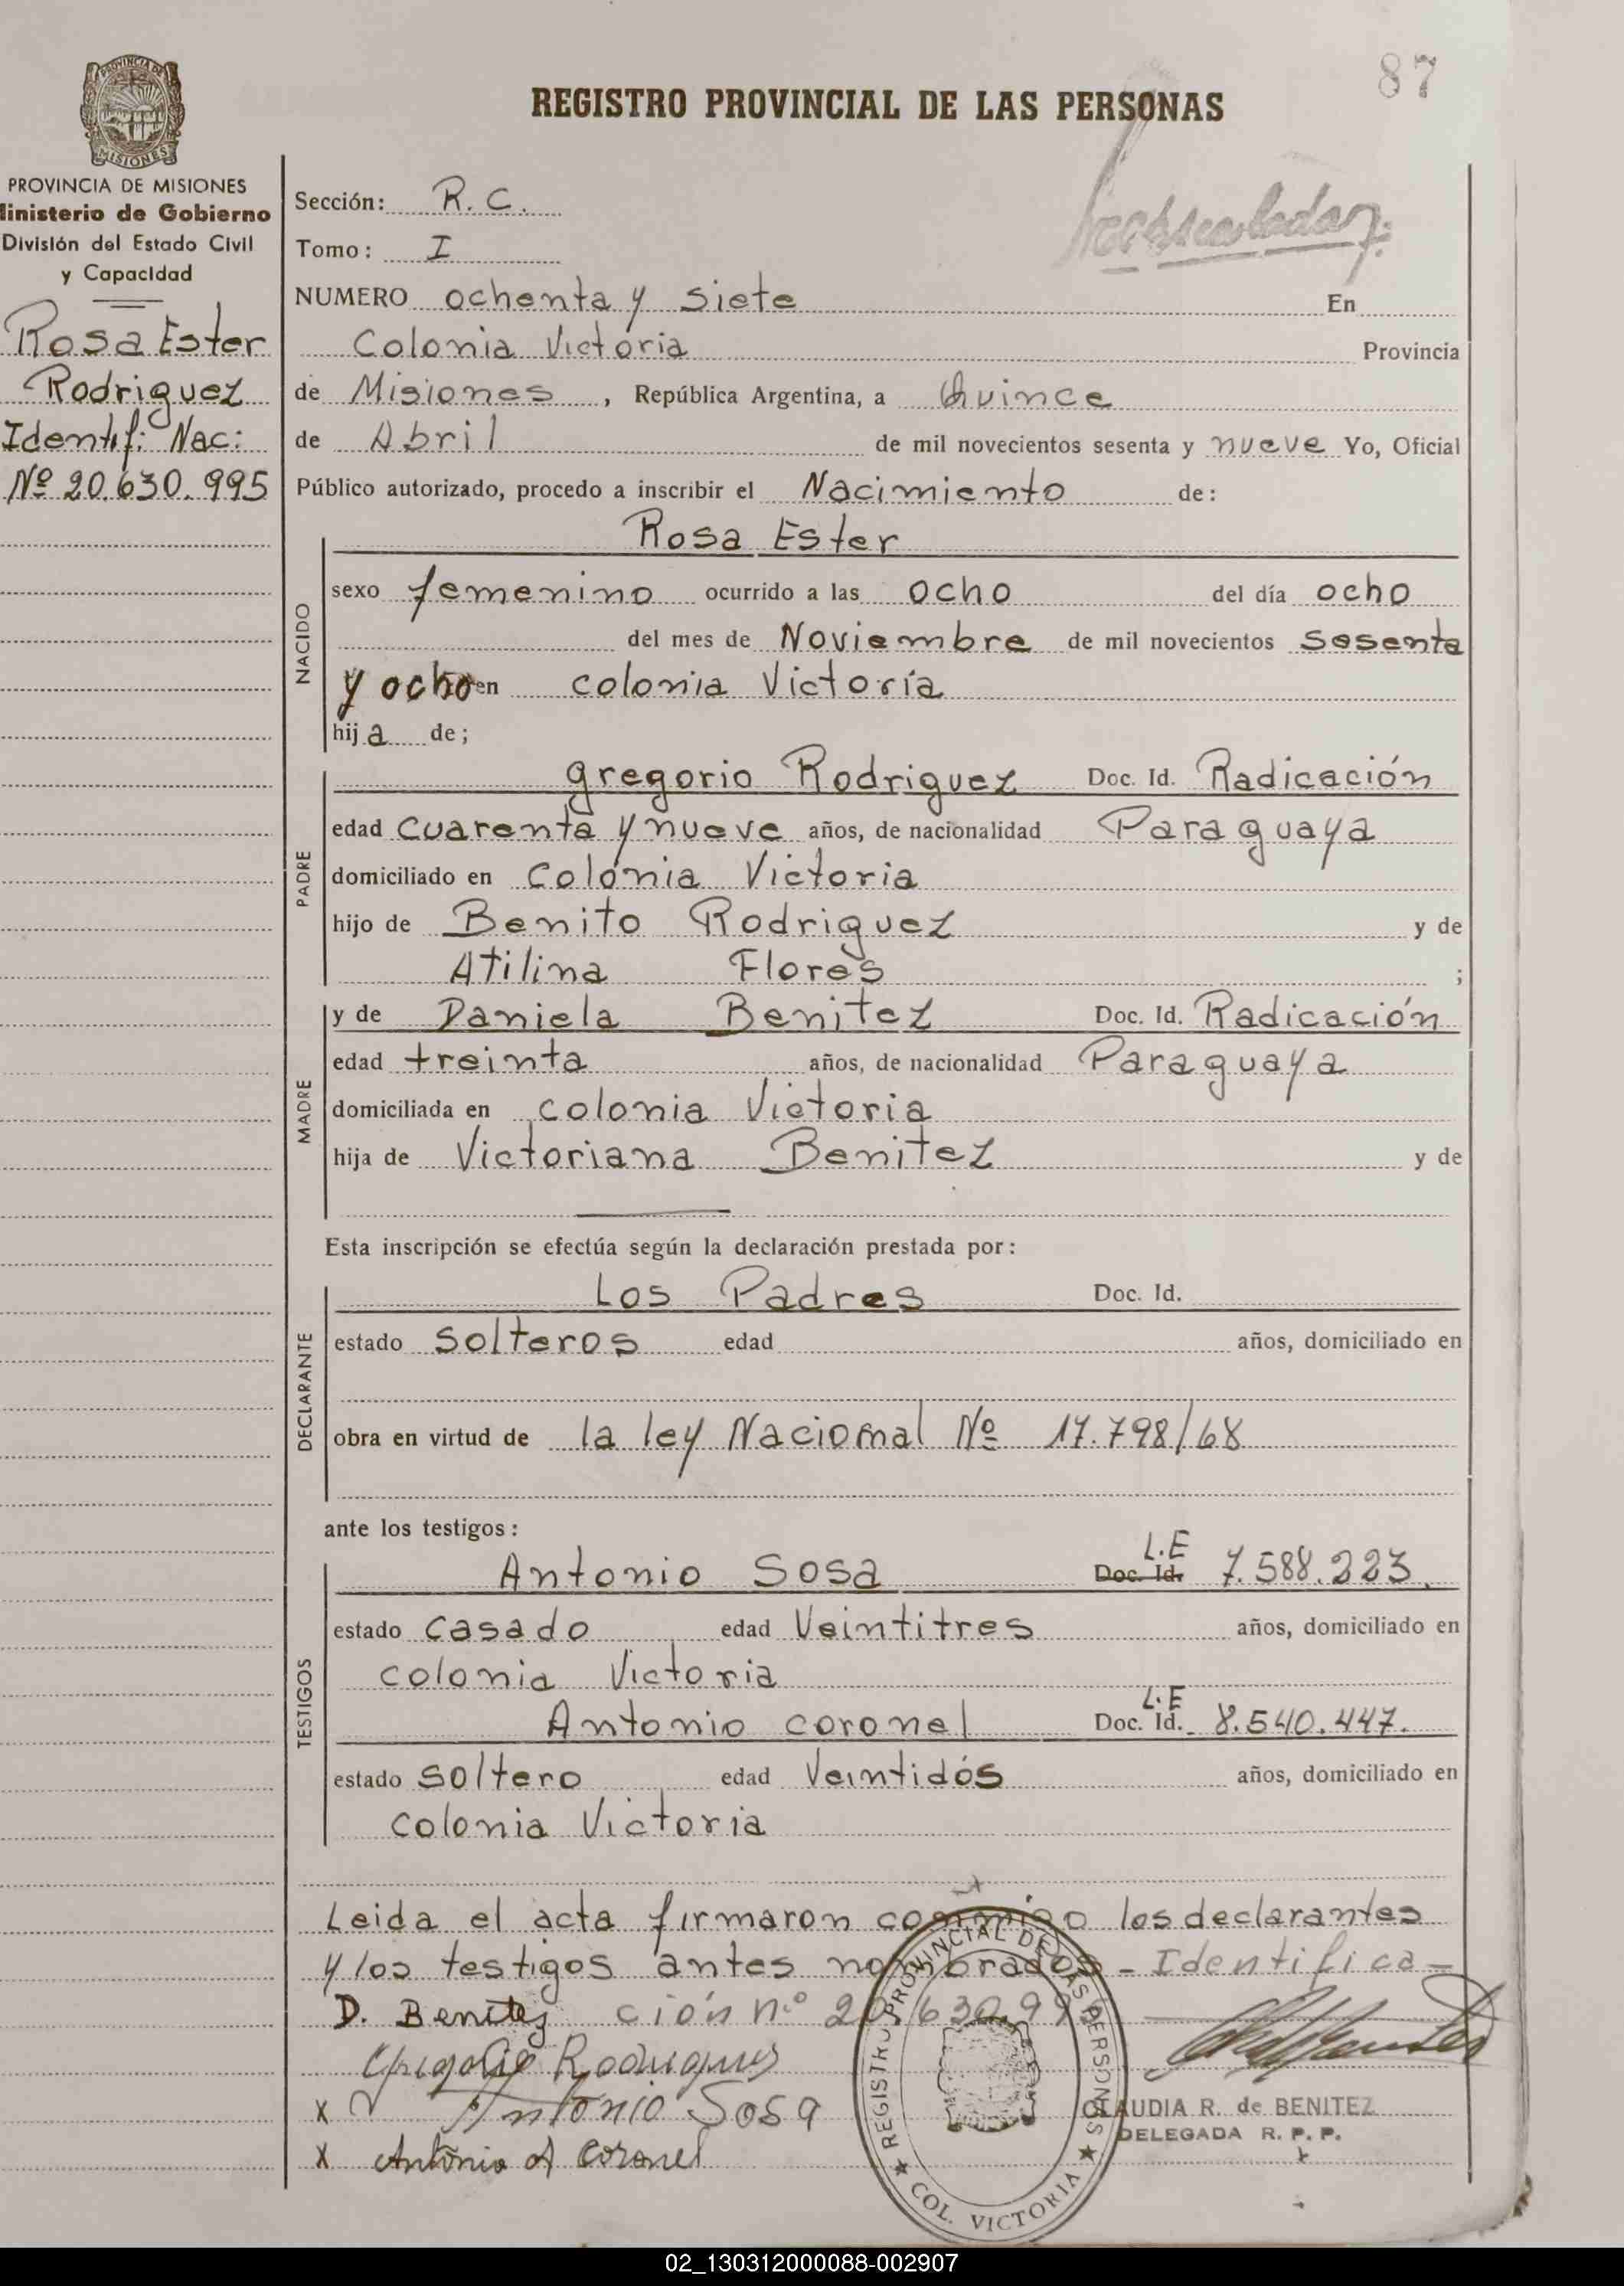 87
REGISTRO PROVINCIAL DE LAS PERSONAS
PROVINCIA DE MISIONES
PROVINCIA DE MISIONES
Ministerio de Gobierno
División del Estado Civil
y Capacidad
Rosa Ester
Rodriguez
Identif: Nac:
Nº 20.630.995
Sección: R.C.
Tomo: I
NUMERO ochenta y siete En
Colonia Victoria Provincia
de Misiones, República Argentina, a Quince
de Abril de mil novecientos sesenta y nueve Yo, Oficial
Público autorizado, procedo a inscribir el Nacimiento de:
Rosa Ester
NACIDO
sexo femenino ocurrido a las ocho del día ocho
del mes de Noviembre de mil novecientos sesenta
y ocho en colonia Victoria
hija de;
PADRE
gregorio Rodriguez Doc. Id. Radicación
edad cuarenta y nueve años, de nacionalidad Paraguaya
domiciliado en Colonia Victoria
hijo de Benito Rodriguez y de
Atilina Flores ;
MADRE
y de Daniela Benitez Doc. Id. Radicación
edad treinta años, de nacionalidad Paraguaya
domiciliada en colonia Victoria
hija de Victoriana Benitez y de
Esta inscripción se efectúa según la declaración prestada por:
DECLARANTE
Los Padres Doc. Id.
estado solteros edad años, domiciliado en
obra en virtud de la ley Nacional Nº 17.798/68
ante los testigos:
TESTIGOS
Antonio Sosa Doc. Id. L.E 7.588.223.
estado casado edad Veintitres años, domiciliado en
colonia Victoria
Antonio coronel Doc. Id. L.E 8.540.447.
estado soltero edad Veintidós años, domiciliado en
colonia Victoria
Leida el acta firmaron conmigo los declarantes
y los testigos antes nombrados - Identifica-
D. Benitez ción n.º 20.630.995
Gregorio Rodriguez
X Antonio Sosa
X Antonio A Coronel
REGISTRO PROVINCIAL DE LAS PERSONAS
★ COL. VICTORIA ★
CLAUDIA R. de BENITEZ
DELEGADA R. P. P.
02_130312000088-002907